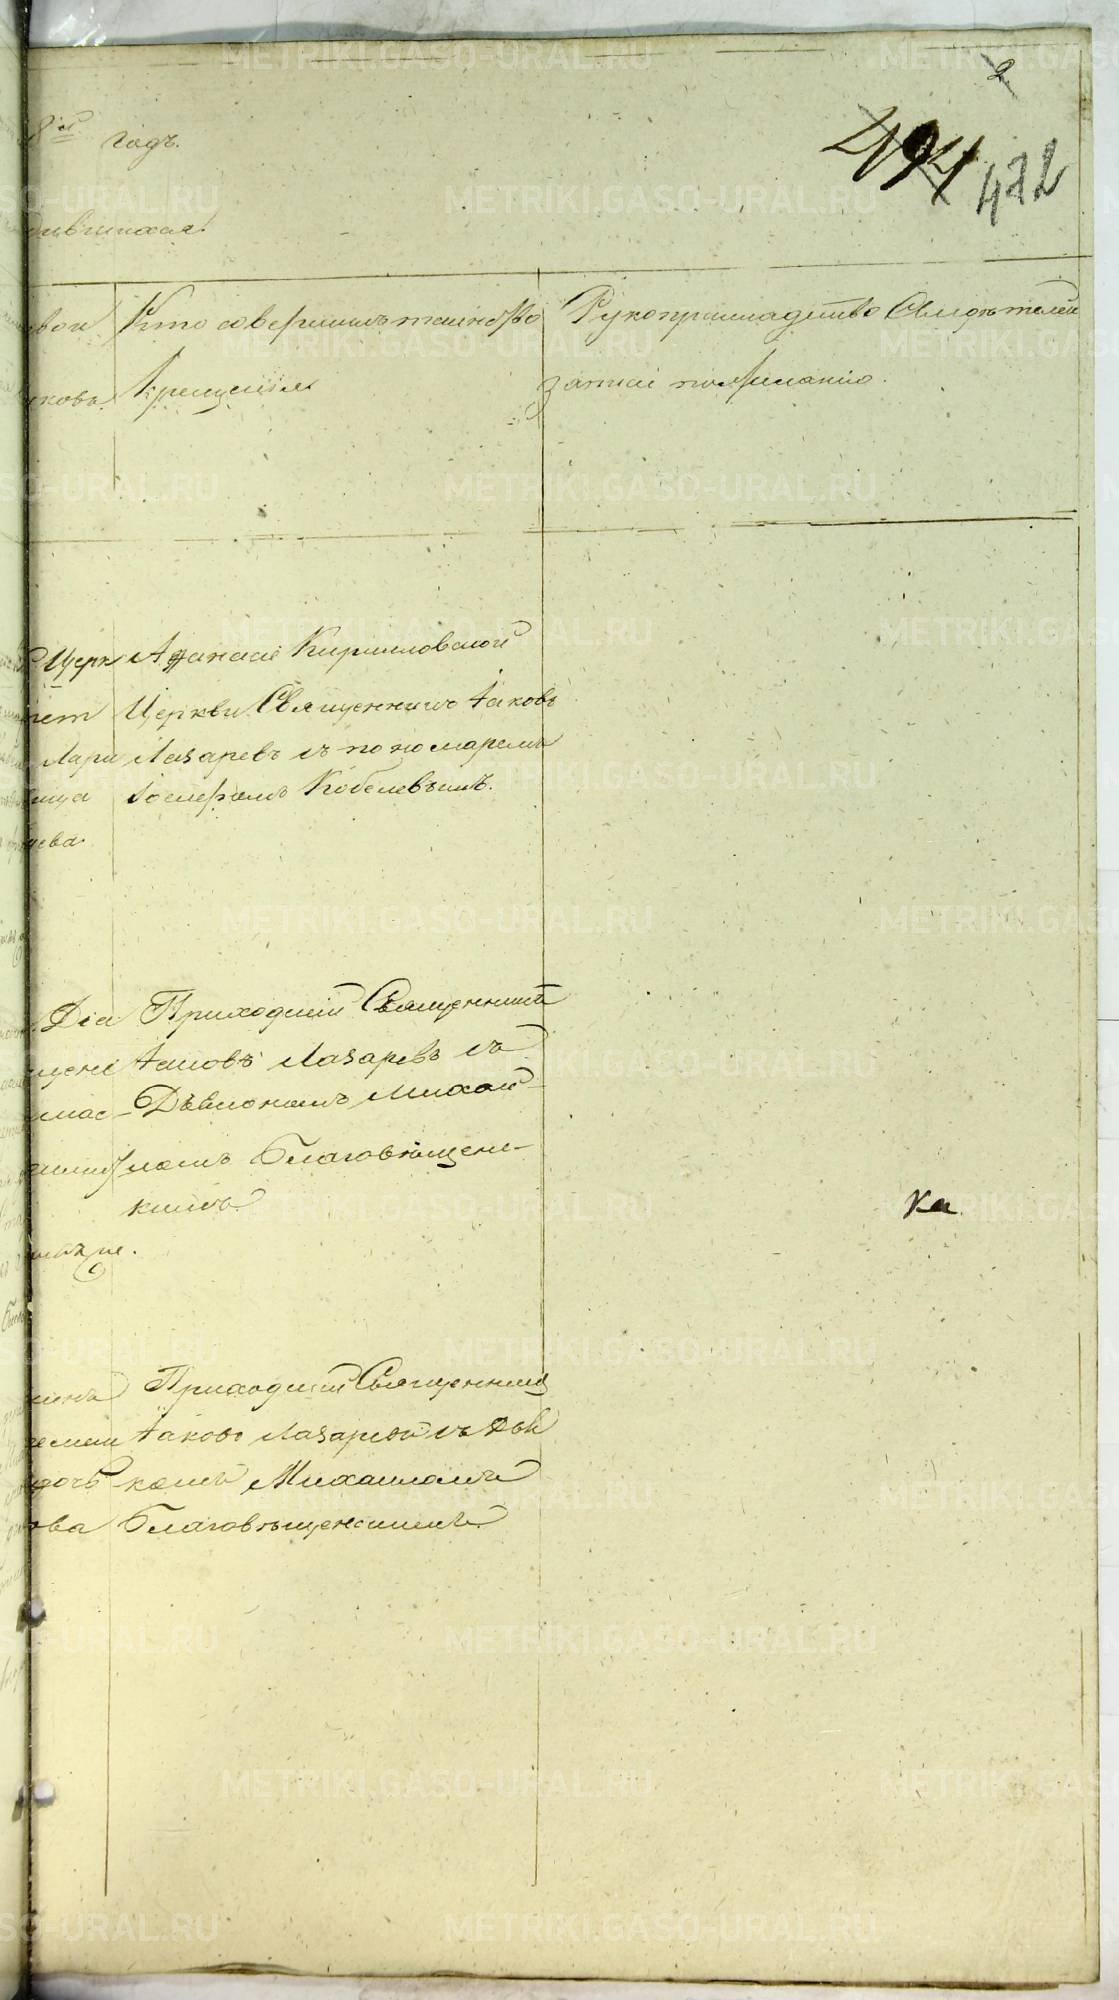 2
8й годъ.
494 472
дившихся.
Кто совершилъ таинство Рукоприкладство Свидѣтелей
ковъ. Крещенія записи по желанію.
Церк Афанасіе Кирилловской
Церкви Священникъ Іаковъ
Лари Лазаревъ съ пономаремъ
ица Іосифомъ Кобелевымъ.
цева.
Діа Приходскій Священникъ
щене Іаковъ Лазаревъ съ
Дьякономъ Михаи-
ломъ Благовѣщенс-
кимъ
Ка
Приходскій Священникъ
Іаковъ Лазаревъ съ Дья
дочь кономъ Михаиломъ
ова Благовѣщенскимъ.
METRIKI.GASO-URAL.RU